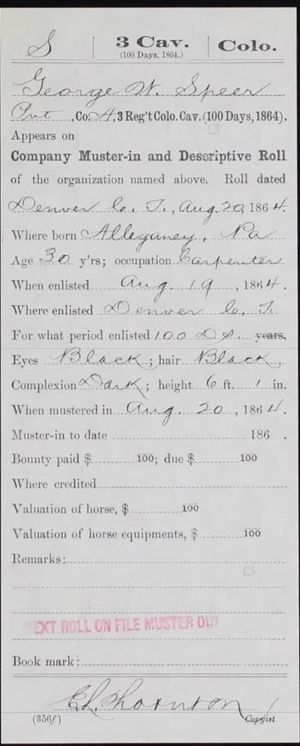 S | 3 Cav. | Colo.
(100 Days, 1864.)
George W. Speer
Pvt, Co. A, 3 Reg't Colo. Cav. (100 Days, 1864).
Appears on
Company Muster-in and Descriptive Roll
of the organization named above. Roll dated
Denver C. T., Aug. 20, 1864.
Where born Alleganey, Pa
Age 30 y'rs; occupation Carpenter
When enlisted Aug. 19, 1864.
Where enlisted Denver C. T.
For what period enlisted 100 Ds. years.
Eyes Black; hair Black
Complexion Dark; height 6 ft. 1 in.
When mustered in Aug. 20, 1864.
Muster-in to date 186 .
Bounty paid $ 100; due $ 100
Where credited
Valuation of horse, $ 100
Valuation of horse equipments, $ 100
Remarks:
EXT ROLL ON FILE MUSTER OUT
Book mark:
E. L. Thornton
(356f) Copyist.